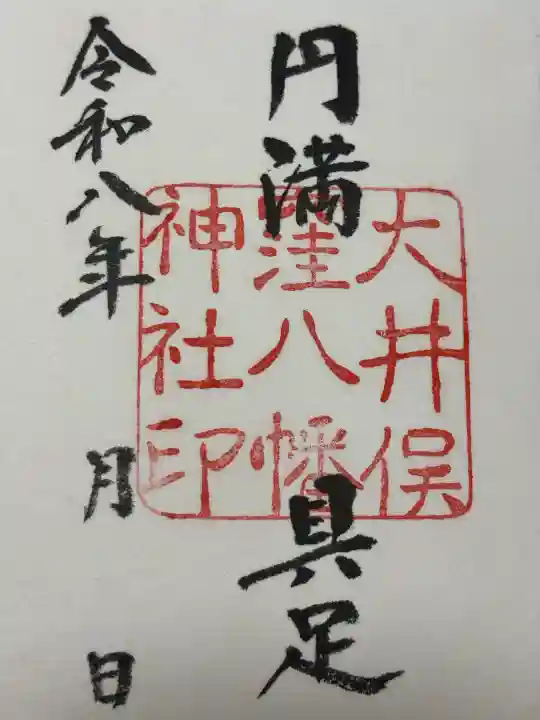 円満具足
大井俣
窪八幡
神社印
令和八年 月 日